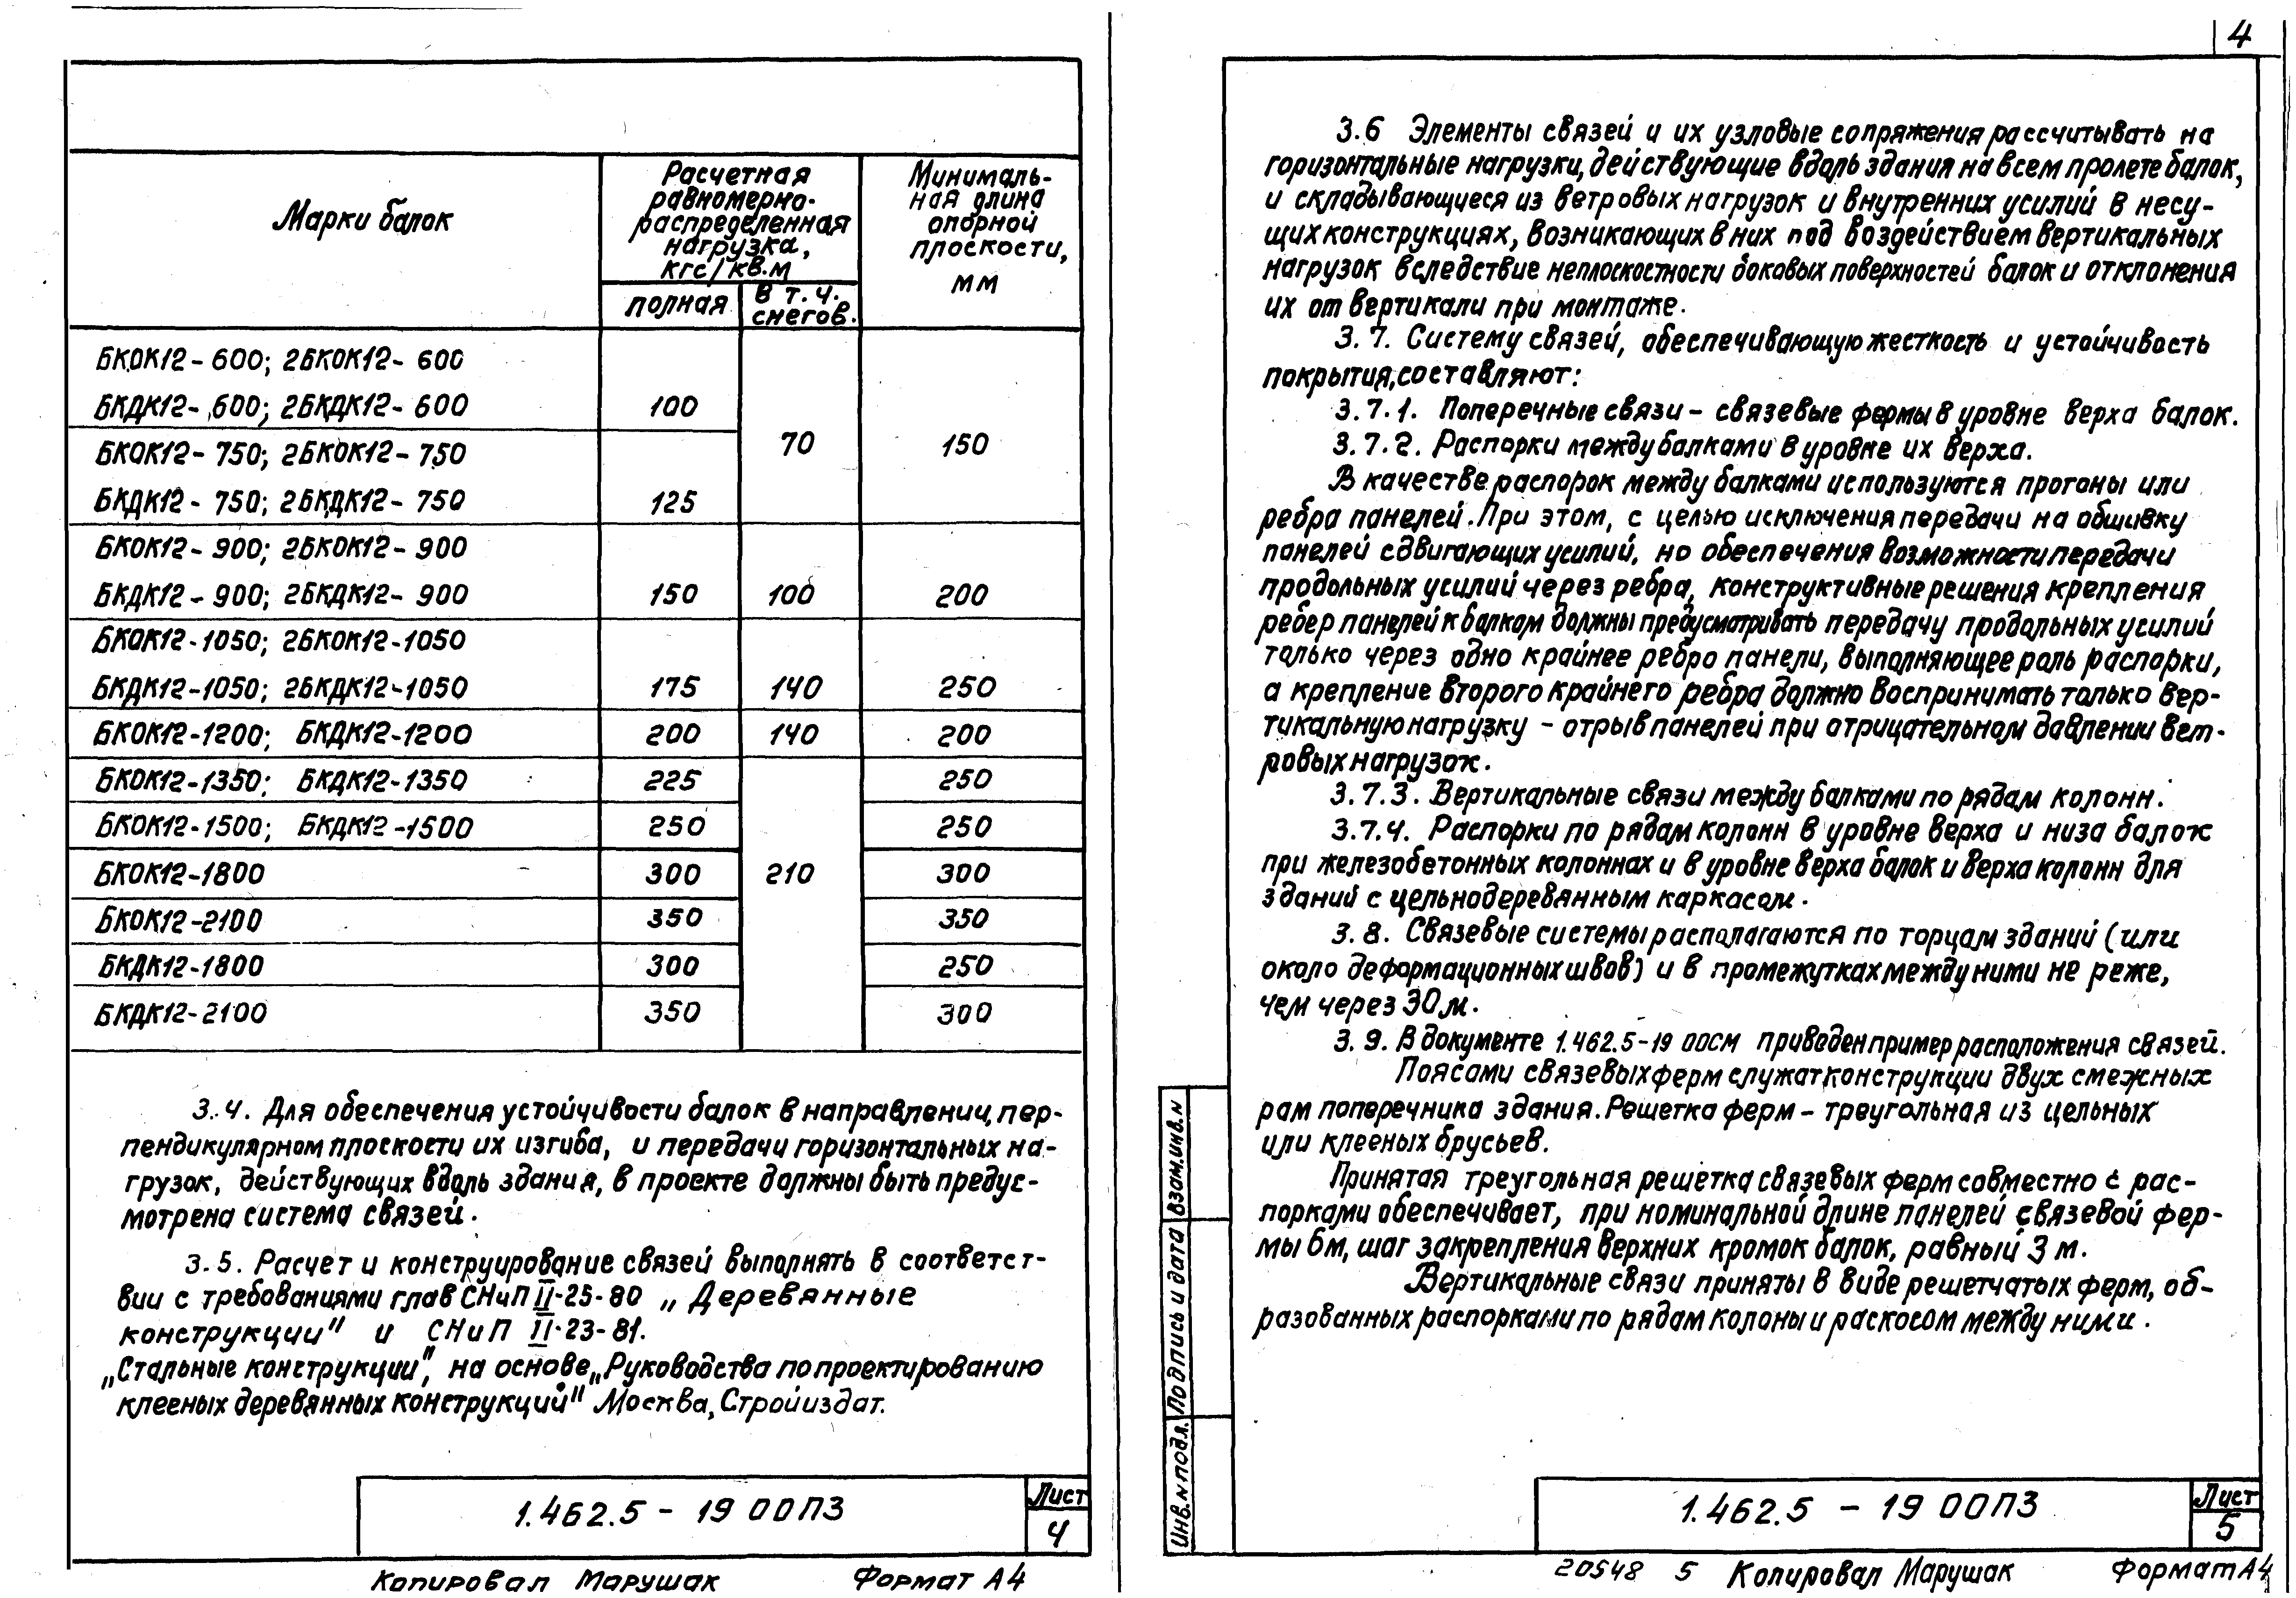 Марки балок
Расчетная
равномерно-
распределенная
нагрузка,
кгс/кв.м
Минималь-
ная длина
опорной
плоскости,
мм
полная
В т. ч.
снегов.
БКОК12-600; 2БКОК12-600
БКДК12-600; 2БКДК12-600 100
БКОК12-750; 2БКОК12-750 70 150
БКДК12-750; 2БКДК12-750 125
БКОК12-900; 2БКОК12-900
БКДК12-900; 2БКДК12-900 150 100 200
БКОК12-1050; 2БКОК12-1050
БКДК12-1050; 2БКДК12-1050 175 140 250
БКОК12-1200; БКДК12-1200 200 140 200
БКОК12-1350; БКДК12-1350 225 250
БКОК12-1500; БКДК12-1500 250 250
БКОК12-1800 300 210 300
БКОК12-2100 350 350
БКДК12-1800 300 250
БКДК12-2100 350 300
3.4. Для обеспечения устойчивости балок в направлении, пер-
пендикулярном плоскости их изгиба, и передачи горизонтальных на-
грузок, действующих вдоль здания, в проекте должны быть предус-
мотрена система связей.
3.5. Расчет и конструирование связей выполнять в соответст-
вии с требованиями глав СНиП II-25-80 „Деревянные
конструкции" и СНиП II-23-81.
„Стальные конструкции", на основе „Руководства по проектированию
клееных деревянных конструкций" Москва, Стройиздат.
1.462.5 - 19 00ПЗ
Лист
4
Копировал Марушак Формат А4
4
3.6 Элементы связей и их узловые сопряжения рассчитывать на
горизонтальные нагрузки, действующие вдоль здания на всем пролете балок,
и складывающиеся из ветровых нагрузок и внутренних усилий в несу-
щих конструкциях, возникающих в них под воздействием вертикальных
нагрузок вследствие неплоскостности боковых поверхностей балок и отклонения
их от вертикали при монтаже.
3.7. Систему связей, обеспечивающую жесткость и устойчивость
покрытия, составляют:
3.7.1. Поперечные связи - связевые фермы в уровне верха балок.
3.7.2. Распорки между балками в уровне их верха.
В качестве распорок между балками используются прогоны или
ребра панелей. При этом, с целью исключения передачи на обшивку
панелей сдвигающих усилий, но обеспечения возможности передачи
продольных усилий через ребра, конструктивные решения крепления
ребер панелей к балкам должны предусматривать передачу продольных усилий
только через одно крайнее ребро панели, выполняющее роль распорки,
а крепление второго крайнего ребра должно воспринимать только вер-
тикальную нагрузку - отрыв панелей при отрицательном давлении вет-
ровых нагрузок.
3.7.3. Вертикальные связи между балками по рядам колонн.
3.7.4. Распорки по рядам колонн в уровне верха и низа балок
при железобетонных колоннах и в уровне верха балок и верха колонн для
зданий с цельнодеревянным каркасом.
3.8. Связевые системы располагаются по торцам зданий (или
около деформационных швов) и в промежутках между ними не реже,
чем через 30м.
3.9. В документе 1.462.5-19 00СМ приведен пример расположения связей.
Поясами связевых ферм служат конструкции двух смежных
рам поперечника здания. Решетка ферм - треугольная из цельных
или клееных брусьев.
Принятая треугольная решетка связевых ферм совместно с рас-
порками обеспечивает, при номинальной длине панелей связевой фер-
мы 6м, шаг закрепления верхних кромок балок, равный 3 м.
Вертикальные связи приняты в виде решетчатых ферм, об-
разованных распорками по рядам колоны и раскосом между ними.
Инв.№подл. Подпись и дата Взам.инв.№
1.462.5 - 19 00ПЗ
Лист
5
20548 5 Копировал Марушак Формат А4